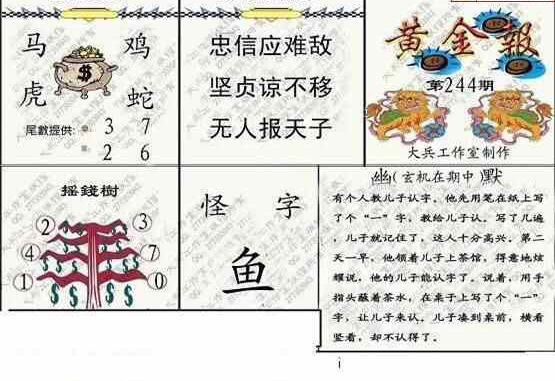 马 鸡
$
虎 蛇
尾數提供: 3 7
2 6
忠信应难敌
坚贞谅不移
无人报天子
黄金報
第244期
大兵工作室制作
摇錢樹
2 3
4 7
1 0
$ $ $ $ $ $
怪 字
鱼
幽(玄机在期中 默
有个人教儿子认字。他先用笔在纸上写
了个“一”字，教给儿子认。写了几遍
，儿子就记住了，这人十分高兴。第二
天一早，他领着儿子上茶馆，得意地炫
耀说，他的儿子能认字了。说着，用手
指头蘸着茶水，在桌子上写了个“一”
字，让儿子来认。儿子凑到桌前，横看
竖看，却不认得了。
i